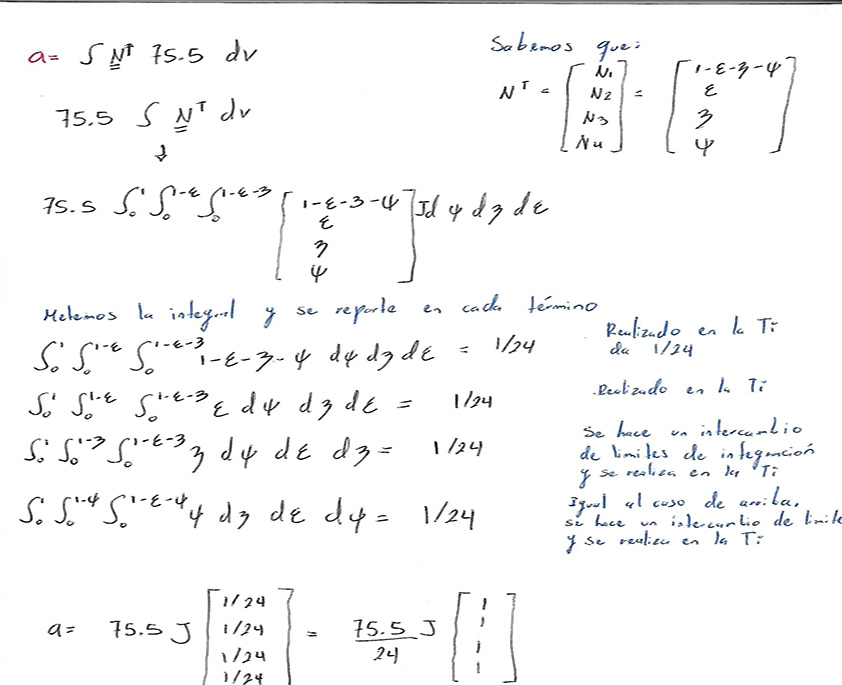 a= ∫ N^T 75.5 dv
75.5 ∫ N^T dv
↓
Sabemos que:
N^T = [N1 N2 N3 N4] = [1-ε-ʒ-ψ ε ʒ ψ]
75.5 ∫₀^1 ∫₀^1-ε ∫₀^1-ε-ʒ [1-ε-ʒ-ψ ε ʒ ψ] J dψ dʒ dε
Metemos la integral y se reparte en cada término
∫₀^1 ∫₀^1-ε ∫₀^1-ε-ʒ 1-ε-ʒ-ψ dψ dʒ dε = 1/24
Realizado en la Ti
da 1/24
∫₀^1 ∫₀^1-ε ∫₀^1-ε-ʒ ε dψ dʒ dε = 1/24
Realizado en la Ti
∫₀^1 ∫₀^1-ʒ ∫₀^1-ε-ʒ ʒ dψ dε dʒ = 1/24
Se hace un intercambio
de limites de integración
y se realiza en la Ti
∫₀^1 ∫₀^1-ψ ∫₀^1-ε-ψ ψ dʒ dε dψ = 1/24
Igual al caso de arriba,
se hace un intercambio de limite
y se realiza en la Ti
a= 75.5 J [1/24 1/24 1/24 1/24] = 75.5/24 J [1 1 1 1]